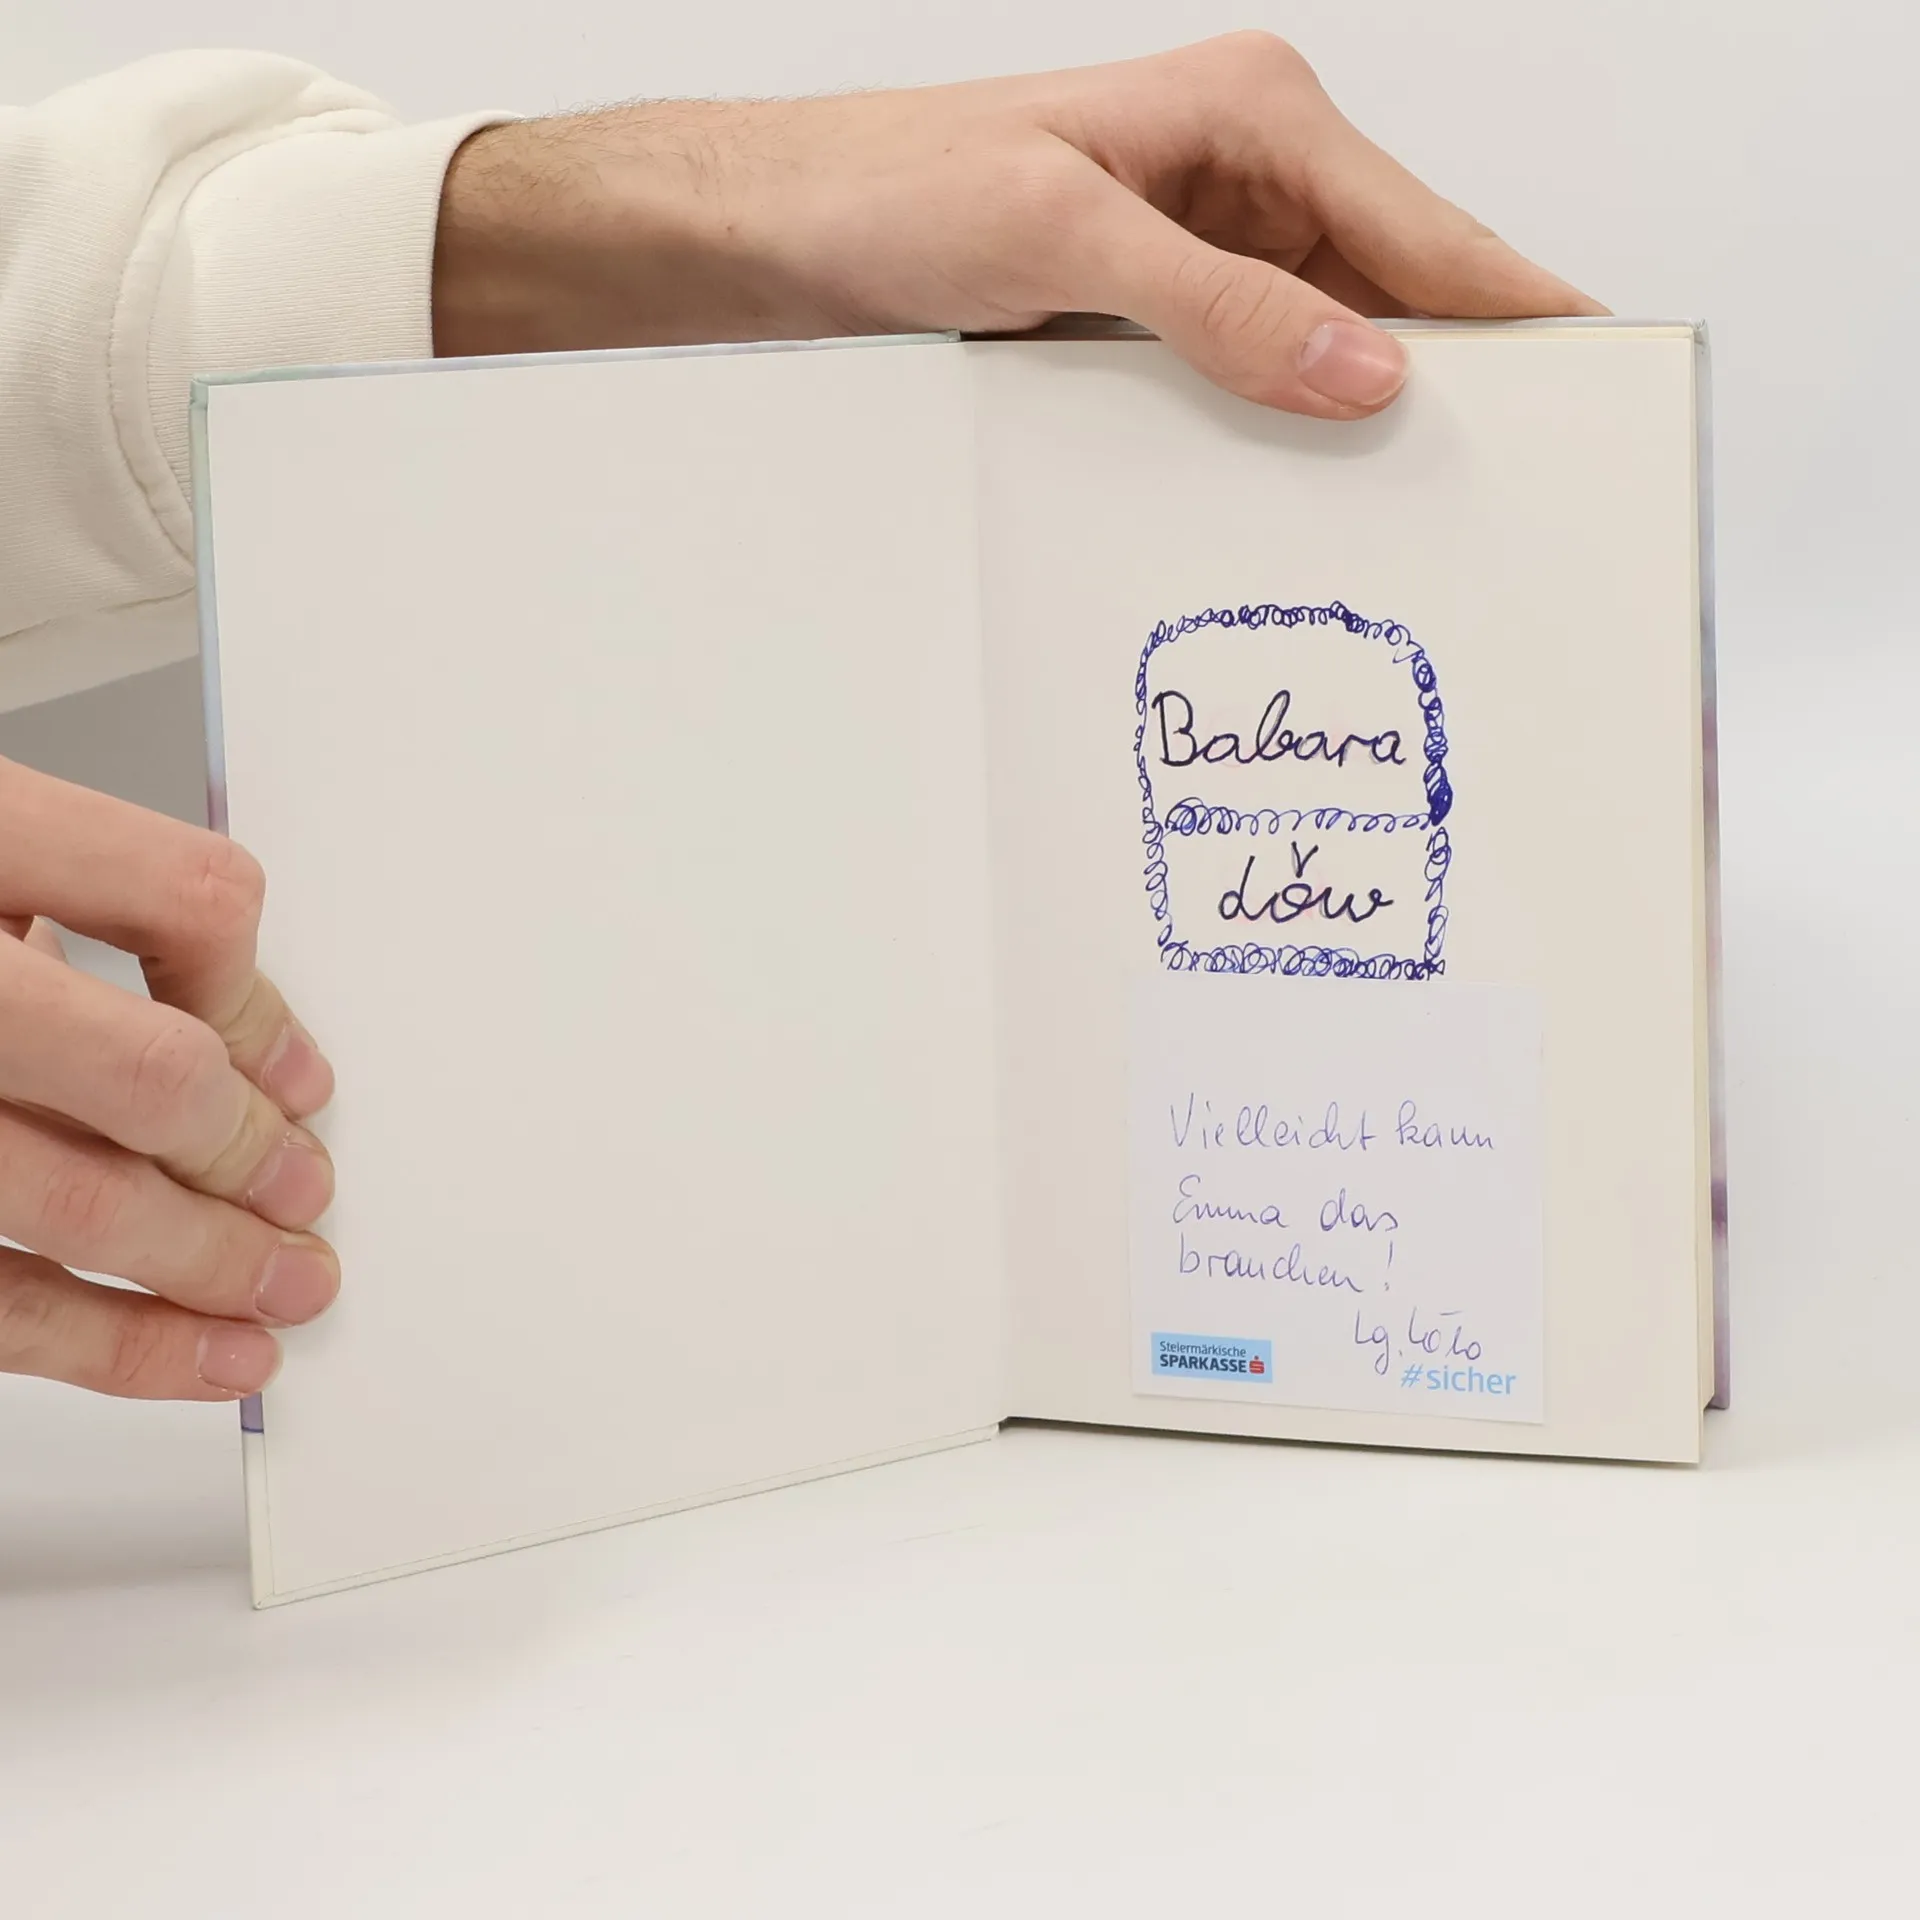 Babara
Vielleicht kann
Emma das
brauchen!
Lg.
Steiermärkische
SPARKASSE
#sicher